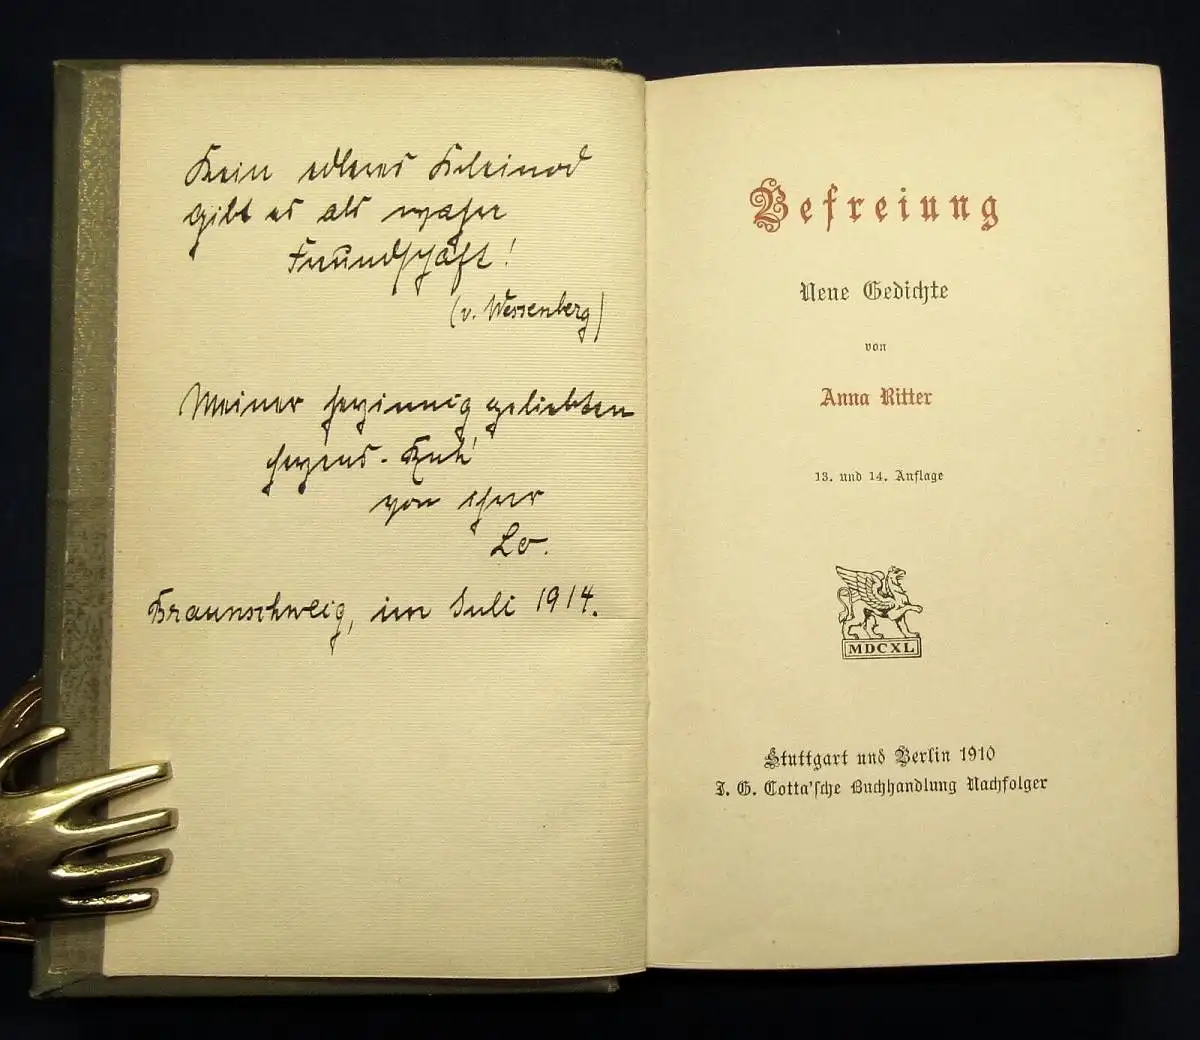 Kein edleres Kleinod
gibt es als wahre
Freundschaft!
(v. Wessenberg)
Meiner herzinnig geliebten
Herzens-
von ihrer
Lo.
Braunschweig, im Juli 1914.
Befreiung
Neue Gedichte
von
Anna Ritter
13. und 14. Auflage
MDCXL
Stuttgart und Berlin 1910
J. G. Cotta'sche Buchhandlung Nachfolger